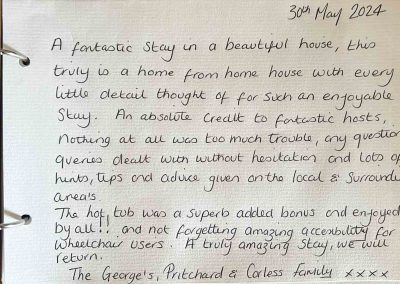 30th May 2024
A fantastic stay in a beautiful house, this
truly is a home from home house with every
little detail thought of for such an enjoyable
stay. An absolute credit to fantastic hosts,
nothing at all was too much trouble, any question
queries dealt with without hesitation and lots of
hints, tips and advice given on the local & surroundi
area's.
The hot tub was a superb added bonus and enjoyed
by all!! and not forgetting amazing accessibility for
wheelchair users. A truly amazing stay, we will
return.
The George's, Pritchard & Corless Family xxxx